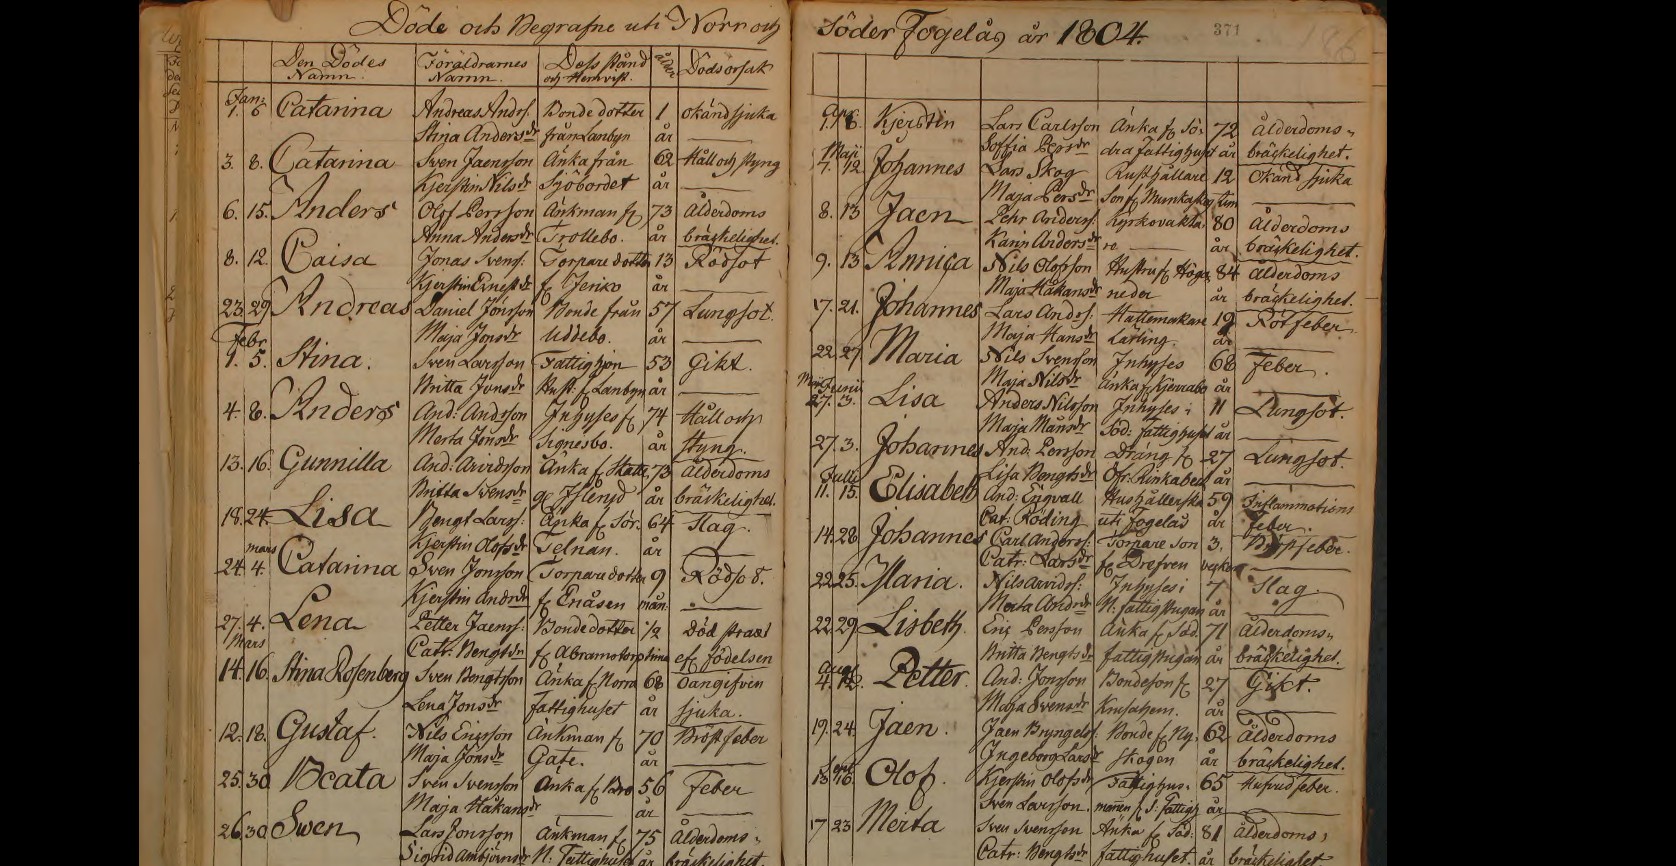 Döde och Begrafne uti Norr och
Den Dödes Namn. Föräldrarnes Namn. Dess stånd och Hemvist. ålder Dödsorsak
Jan:
1. 6. Catarina Andreas Andrs. Bonde dotter 1 okänd sjuka
Stina Andersdr från Lanbyn år
3. 8. Catarina Sven Jaensson Änka från 62 Håll och styng
Kjerstin Nilsdr Sjöbordet år
6. 15. Anders Olof Persson Änkman f 73 Ålderdoms
Anna Andersdr Trollebo. år bräckelighet.
8. 12. Caisa Jonas Svens: Torpare dotter 13 Rödsot
Kjerstin f Jeriko år
23. 29 Andreas Daniel Jonsson Bonde från 57 Lungsot.
Maja Jonsdr Uddebo. år
Febr
1. 5. Stina. Sven Larsson Fattighjon 53 Gikt.
Britta Jonsdr Hust. f Lanbyn år
4. 8. Anders And: Andrsson Inhyses f 74 Håll och
Merta Jonsdr Signesbo. år styng.
13. 16. Gunnilla And. Arvidsson Änka f 73 ålderdoms
Britta Svensdr år bräckelighet.
18. 24. Lisa Bengt Larss: Änka f Sör. 64 Slag.
Kjerstin Olofsdr Felnan. år
mars
24. 4. Catarina Sven Jonsson Torparedotter 9 Rödsot.
Kjerstin Andrsdr f Enåsen mån:
27. 4. Lena Petter Jaenss: Bonde dotter 1/2 Död strax
Mars
Catr: Bengtsdr f Abramstorp tima ef. födelsen
14. 16. Stina Rosenberg Sven Bengtsson Änka f Norra 68 oangifven
Lena Jonsdr fattighuset år sjuka.
12. 18. Gustaf. Nils Ericsson Änkman f 70 Bröstfeber
Maja Jönsdr Gate. år
25. 30 Beata Sven Svensson Änka f Bro 56 Feber
Maja Håkansdr år
26. 30 Swen Lars Jonsson Änkman f 75 Ålderdoms
Sigrid Ambjörnsdr N: Fattighuset år bräckelighet.
Söder Fogelås år 1804.
371
186
Apr.
1. 8. Kjerstin Lars Carlsson Änka f Sö- 72 ålderdoms
Soffia Persdr dra fattighuset år bräckelighet.
Maji
7. 12 Johannes Lars Skog Rusthållare 12 okänd sjuka
Maja Persdr son f Munkaskog tim
8. 13 Jaen Pehr Anderss. Kyrkovakta 80 Ålderdoms
Karin Andersdr re år bräckelighet.
9. 13 Annica Nils Olofsson Hustru f Höga 84 Ålderdoms
Maja Håkansdr neder år bräckelighet.
17. 21. Johannes Lars Andrs. Hattemakare 19 Rötfeber
Maja Hansdr Lärling. år
22. 27 Maria Nils Svensson Inhyses 68 Feber.
Maja Nilsdr änka f Kjerrabo år
Maji Junii
27. 3. Lisa Anders Nilsson Inhyses i 11 Lungsot.
Maja Månsdr Söd: fattighuset år
27. 3. Johannes And: Persson Dräng f 27 Lungsot.
Lisa Bengtsdr Ofr. Rinkaberg år
Julii
11. 15. Elisabeth And: Engvall Hushållerska 59 Inflammations
Cat: Röding uti Fogelås år feber.
14. 28 Johannes Carl Anderss: Torpare son 3. Bröstfeber.
Catr: Larsdr f Drefven vekor
22. 25. Maria. Nils Arvids. Inhyses i 7 Slag
Merta Andrsdr N: fattigstugan år
22. 29. Lisbeth. Eric Persson Änka f Söd. 71 Ålderdoms
Britta Bengtsdr fattigstugan år bräckelighet.
Aug.
4. 12. Petter. And: Jonsson Bondeson f 27 Gikt.
Maja Svensdr Krusahem. år
19. 24. Jaen. Jaen Bryngels: Bonde f Ny- 62 Ålderdoms
Ingeborg Larsdr skogen år bräckelighet.
Sept
18 16. Olof. Kjerstin Olofsdr Fattighus- 65 Hufvudfeber.
Sven Larsson. mannen f S: Fattigh år
17 23 Merta Sven Svensson Änka f Söd: 81 ålderdoms
Catr: Bengtsdr fattighuset. år bräckelighet